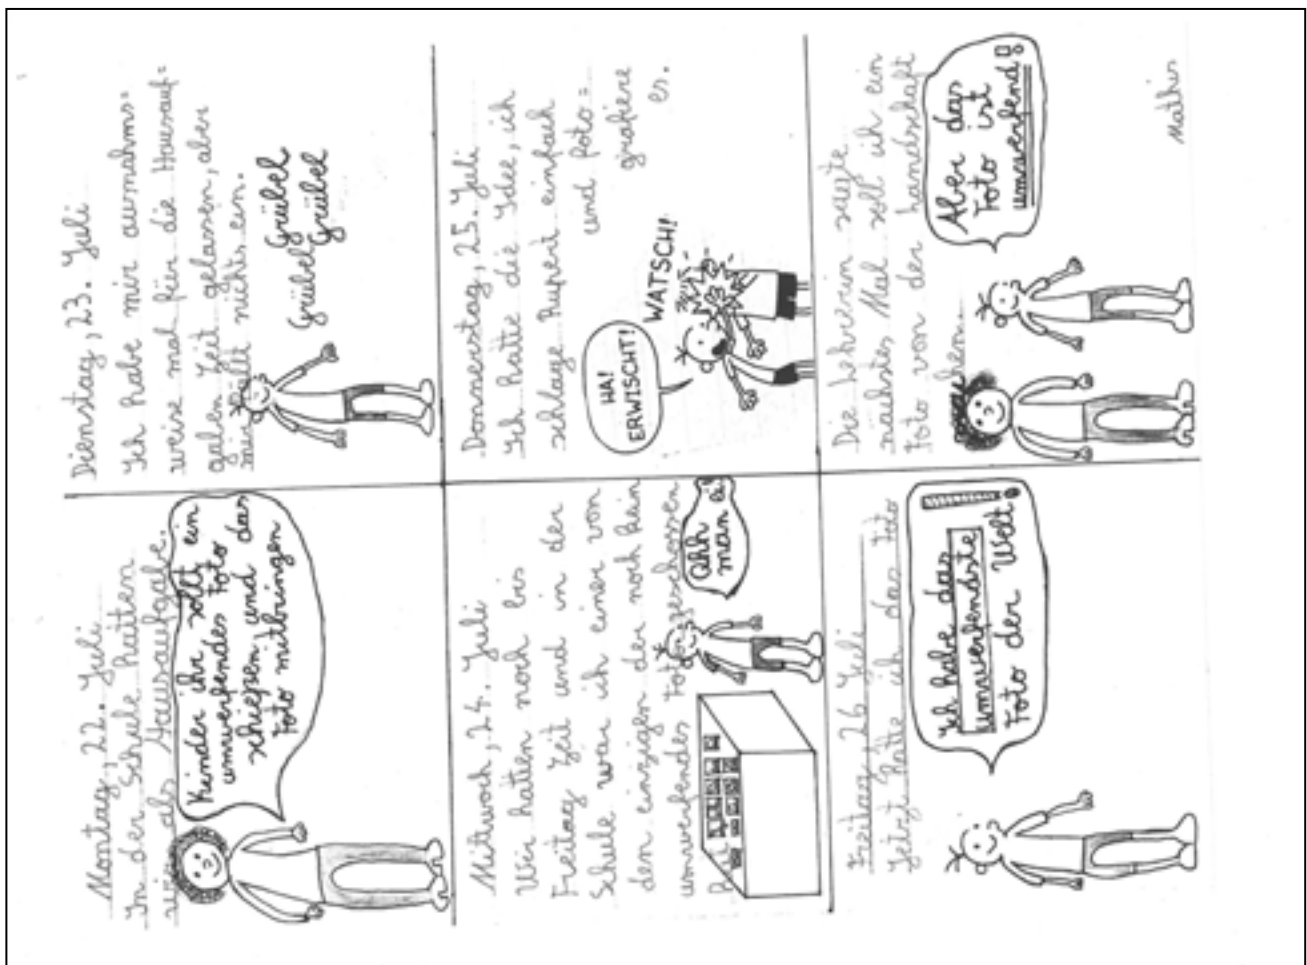 Montag, 22. Juli
In der Schule hatten
wir als Hausaufgabe.
Kinder ihr sollt ein
umwerfendes Foto
schießen und das
Foto mitbringen
Dienstag, 23. Juli
Ich habe mir ausnahms=
weise mal für die Hausauf=
gaben Zeit gelassen, aber
mir fällt nichts ein.
Grübel Grübel
Grübel Grübel
Mittwoch, 24. Juli
Wir hatten noch bis
Freitag Zeit und in der
Schule war ich einer von
den einzigen der noch kein
umwerfendes Foto geschossen
Ohh
man ei
Donnerstag, 25. Juli
Ich hatte die Idee, ich
schlage Rupert einfach
und foto=
grafiere
es.
HA!
ERWISCHT!
WATSCH!
Freitag, 26 Juli
Jetzt hatte ich das Foto
Ich habe das
umwerfendste
Foto der Welt!
Die Lehrerin sagte
nächstes Mal soll ich ein
Foto von der Landschaft
Aber das
Foto ist
umwerfend!
Mathis